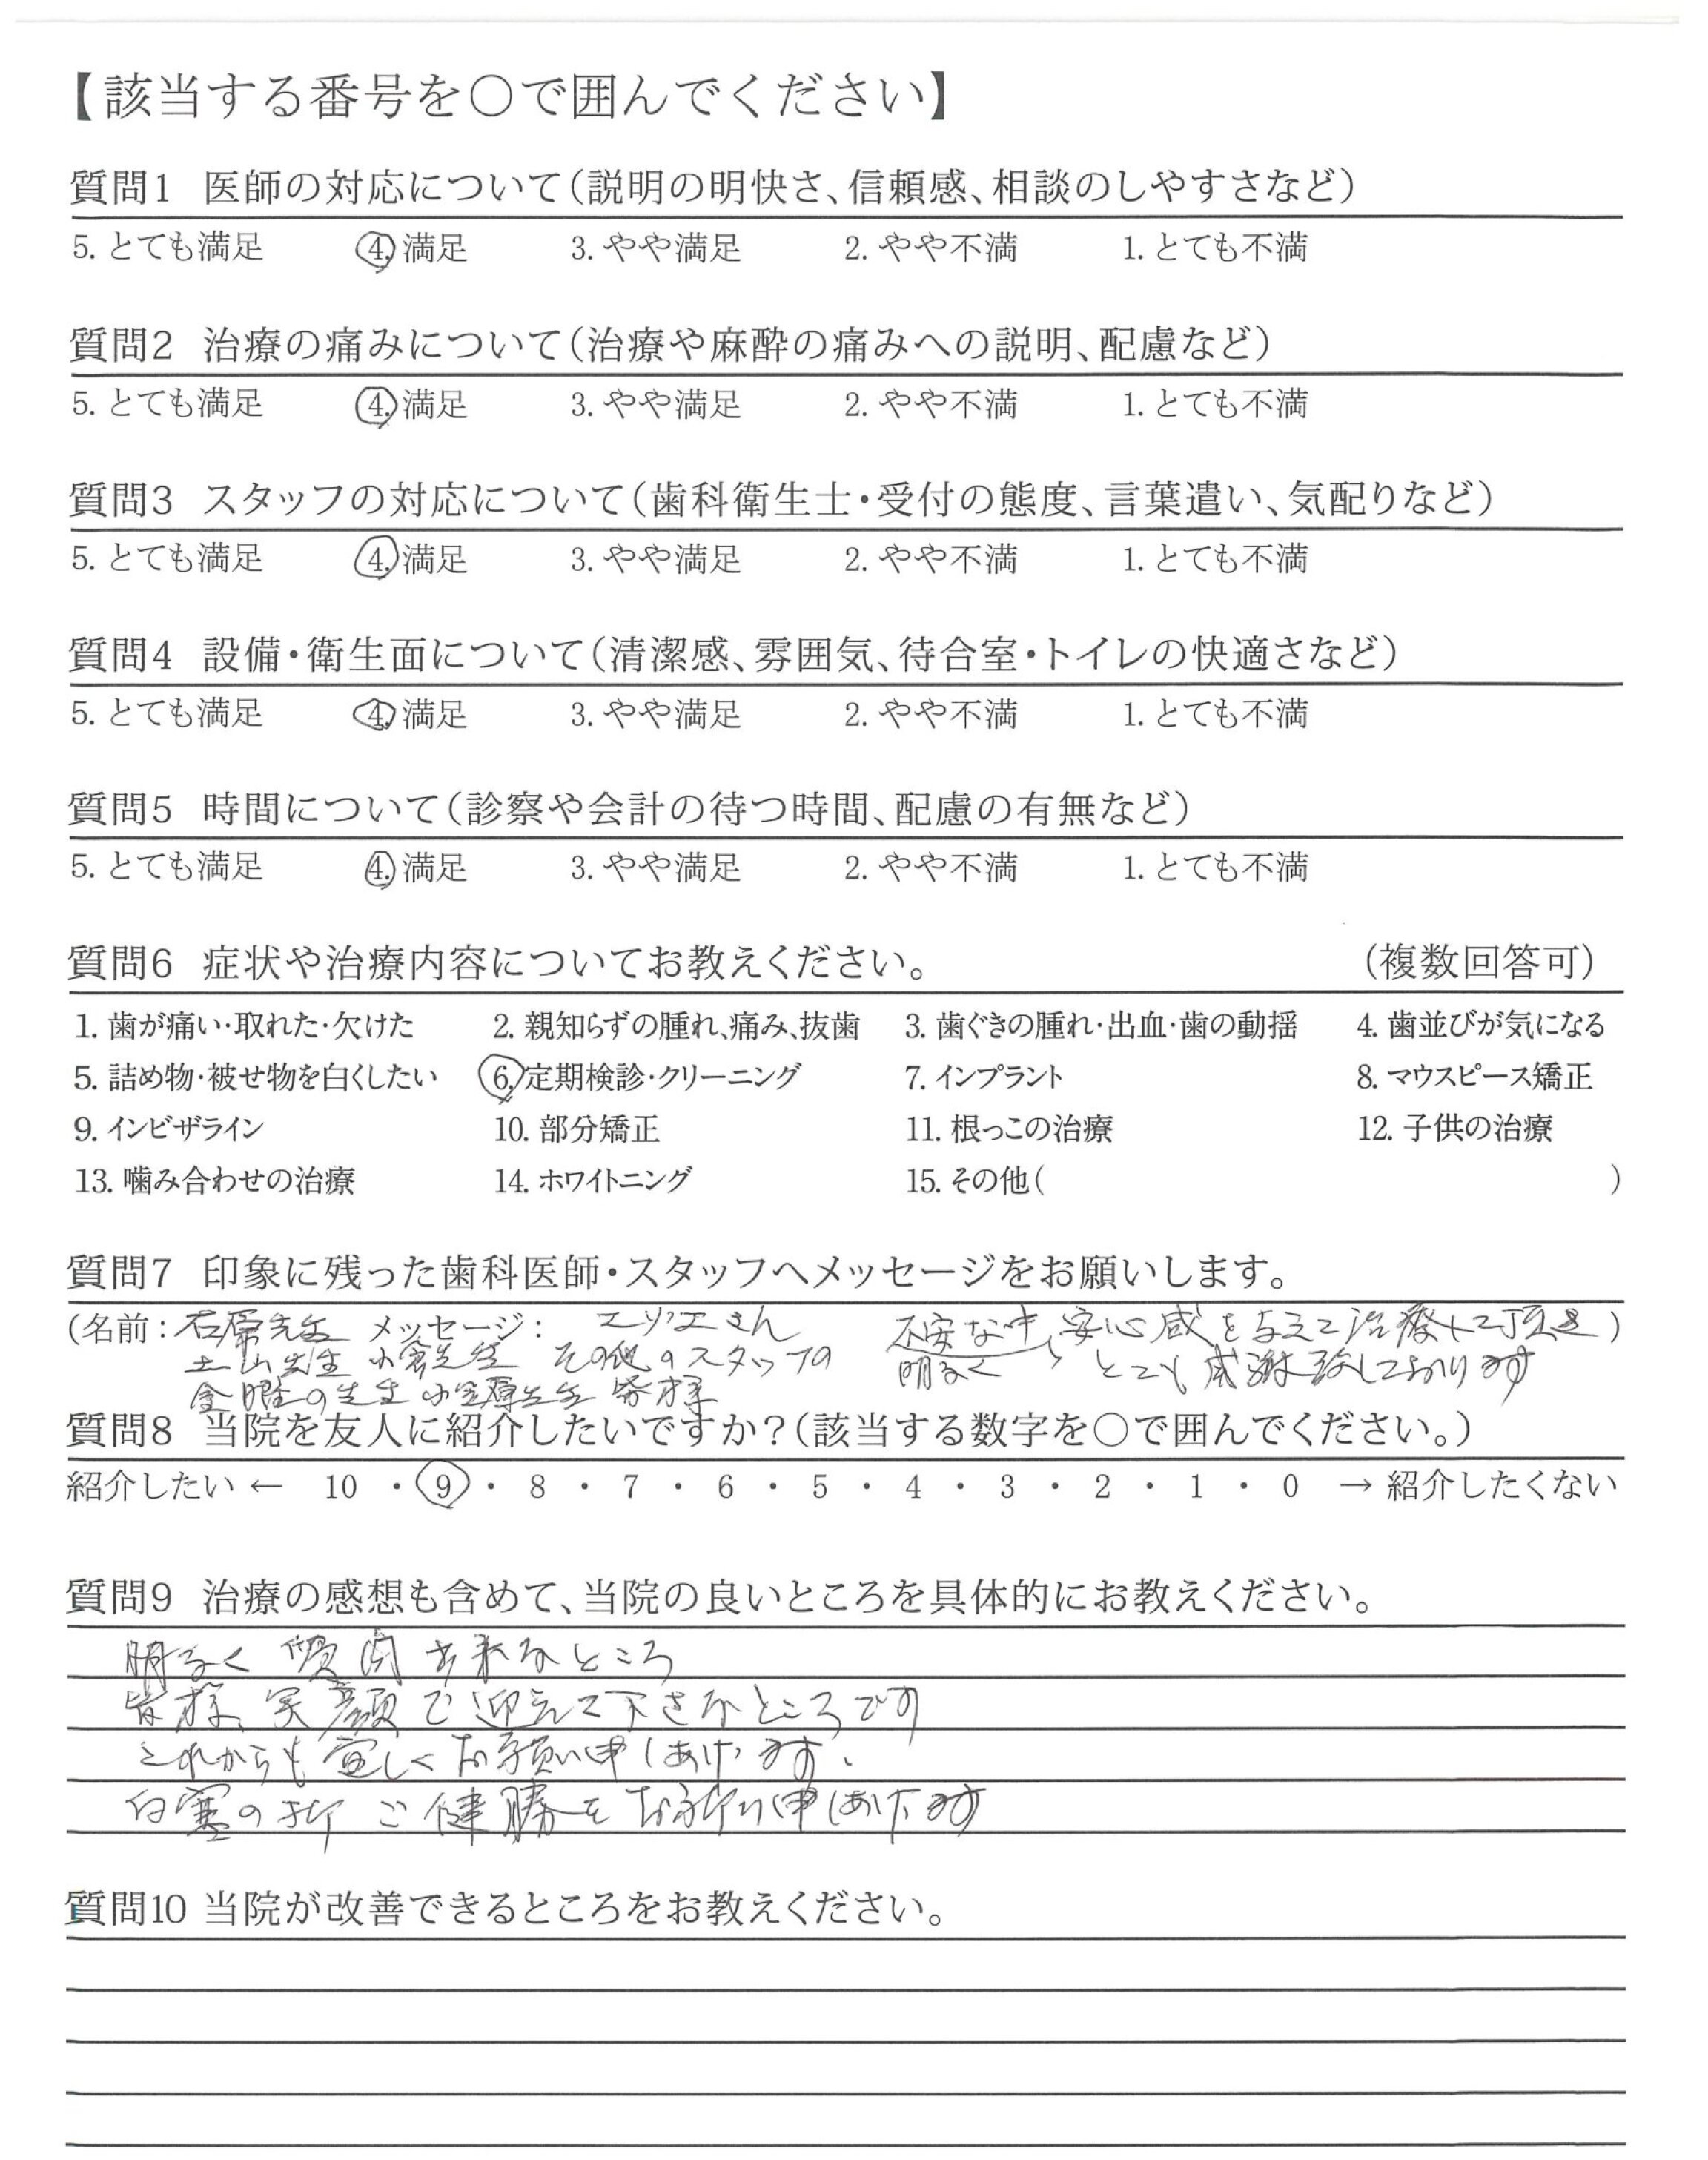 【該当する番号を〇で囲んでください】
質問1 医師の対応について(説明の明快さ、信頼感、相談のしやすさなど)
5. とても満足 4. 満足 3. やや満足 2. やや不満 1. とても不満
質問2 治療の痛みについて(治療や麻酔の痛みへの説明、配慮など)
5. とても満足 4. 満足 3. やや満足 2. やや不満 1. とても不満
質問3 スタッフの対応について(歯科衛生士・受付の態度、言葉遣い、気配りなど)
5. とても満足 4. 満足 3. やや満足 2. やや不満 1. とても不満
質問4 設備・衛生面について(清潔感、雰囲気、待合室・トイレの快適さなど)
5. とても満足 4. 満足 3. やや満足 2. やや不満 1. とても不満
質問5 時間について(診察や会計の待つ時間、配慮の有無など)
5. とても満足 4. 満足 3. やや満足 2. やや不満 1. とても不満
質問6 症状や治療内容についてお教えください。 (複数回答可)
1. 歯が痛い・取れた・欠けた 2. 親知らずの腫れ、痛み、抜歯 3. 歯ぐきの腫れ・出血・歯の動揺 4. 歯並びが気になる
5. 詰め物・被せ物を白くしたい 6. 定期検診・クリーニング 7. インプラント 8. マウスピース矯正
9. インビザライン 10. 部分矯正 11. 根っこの治療 12. 子供の治療
13. 噛み合わせの治療 14. ホワイトニング 15. その他( )
質問7 印象に残った歯科医師・スタッフへメッセージをお願いします。
(名前: 石原先生 メッセージ: さん 不安な中、安心感を与えて治療して頂き)
土山先生 先生 その他のスタッフの 明るく とても感謝致しております
金曜の先生 小笠原先生 皆様
質問8 当院を友人に紹介したいですか?(該当する数字を〇で囲んでください。)
紹介したい ← 10 ・ 9 ・ 8 ・ 7 ・ 6 ・ 5 ・ 4 ・ 3 ・ 2 ・ 1 ・ 0 → 紹介したくない
質問9 治療の感想も含めて、当院の良いところを具体的にお教えください。
明るく 質問出来るところ
皆様、笑顔で迎えて下さるところです
これからも宜しくお願い申しあげます。
向寒の折 ご健勝をお祈り申しあげます
質問10 当院が改善できるところをお教えください。